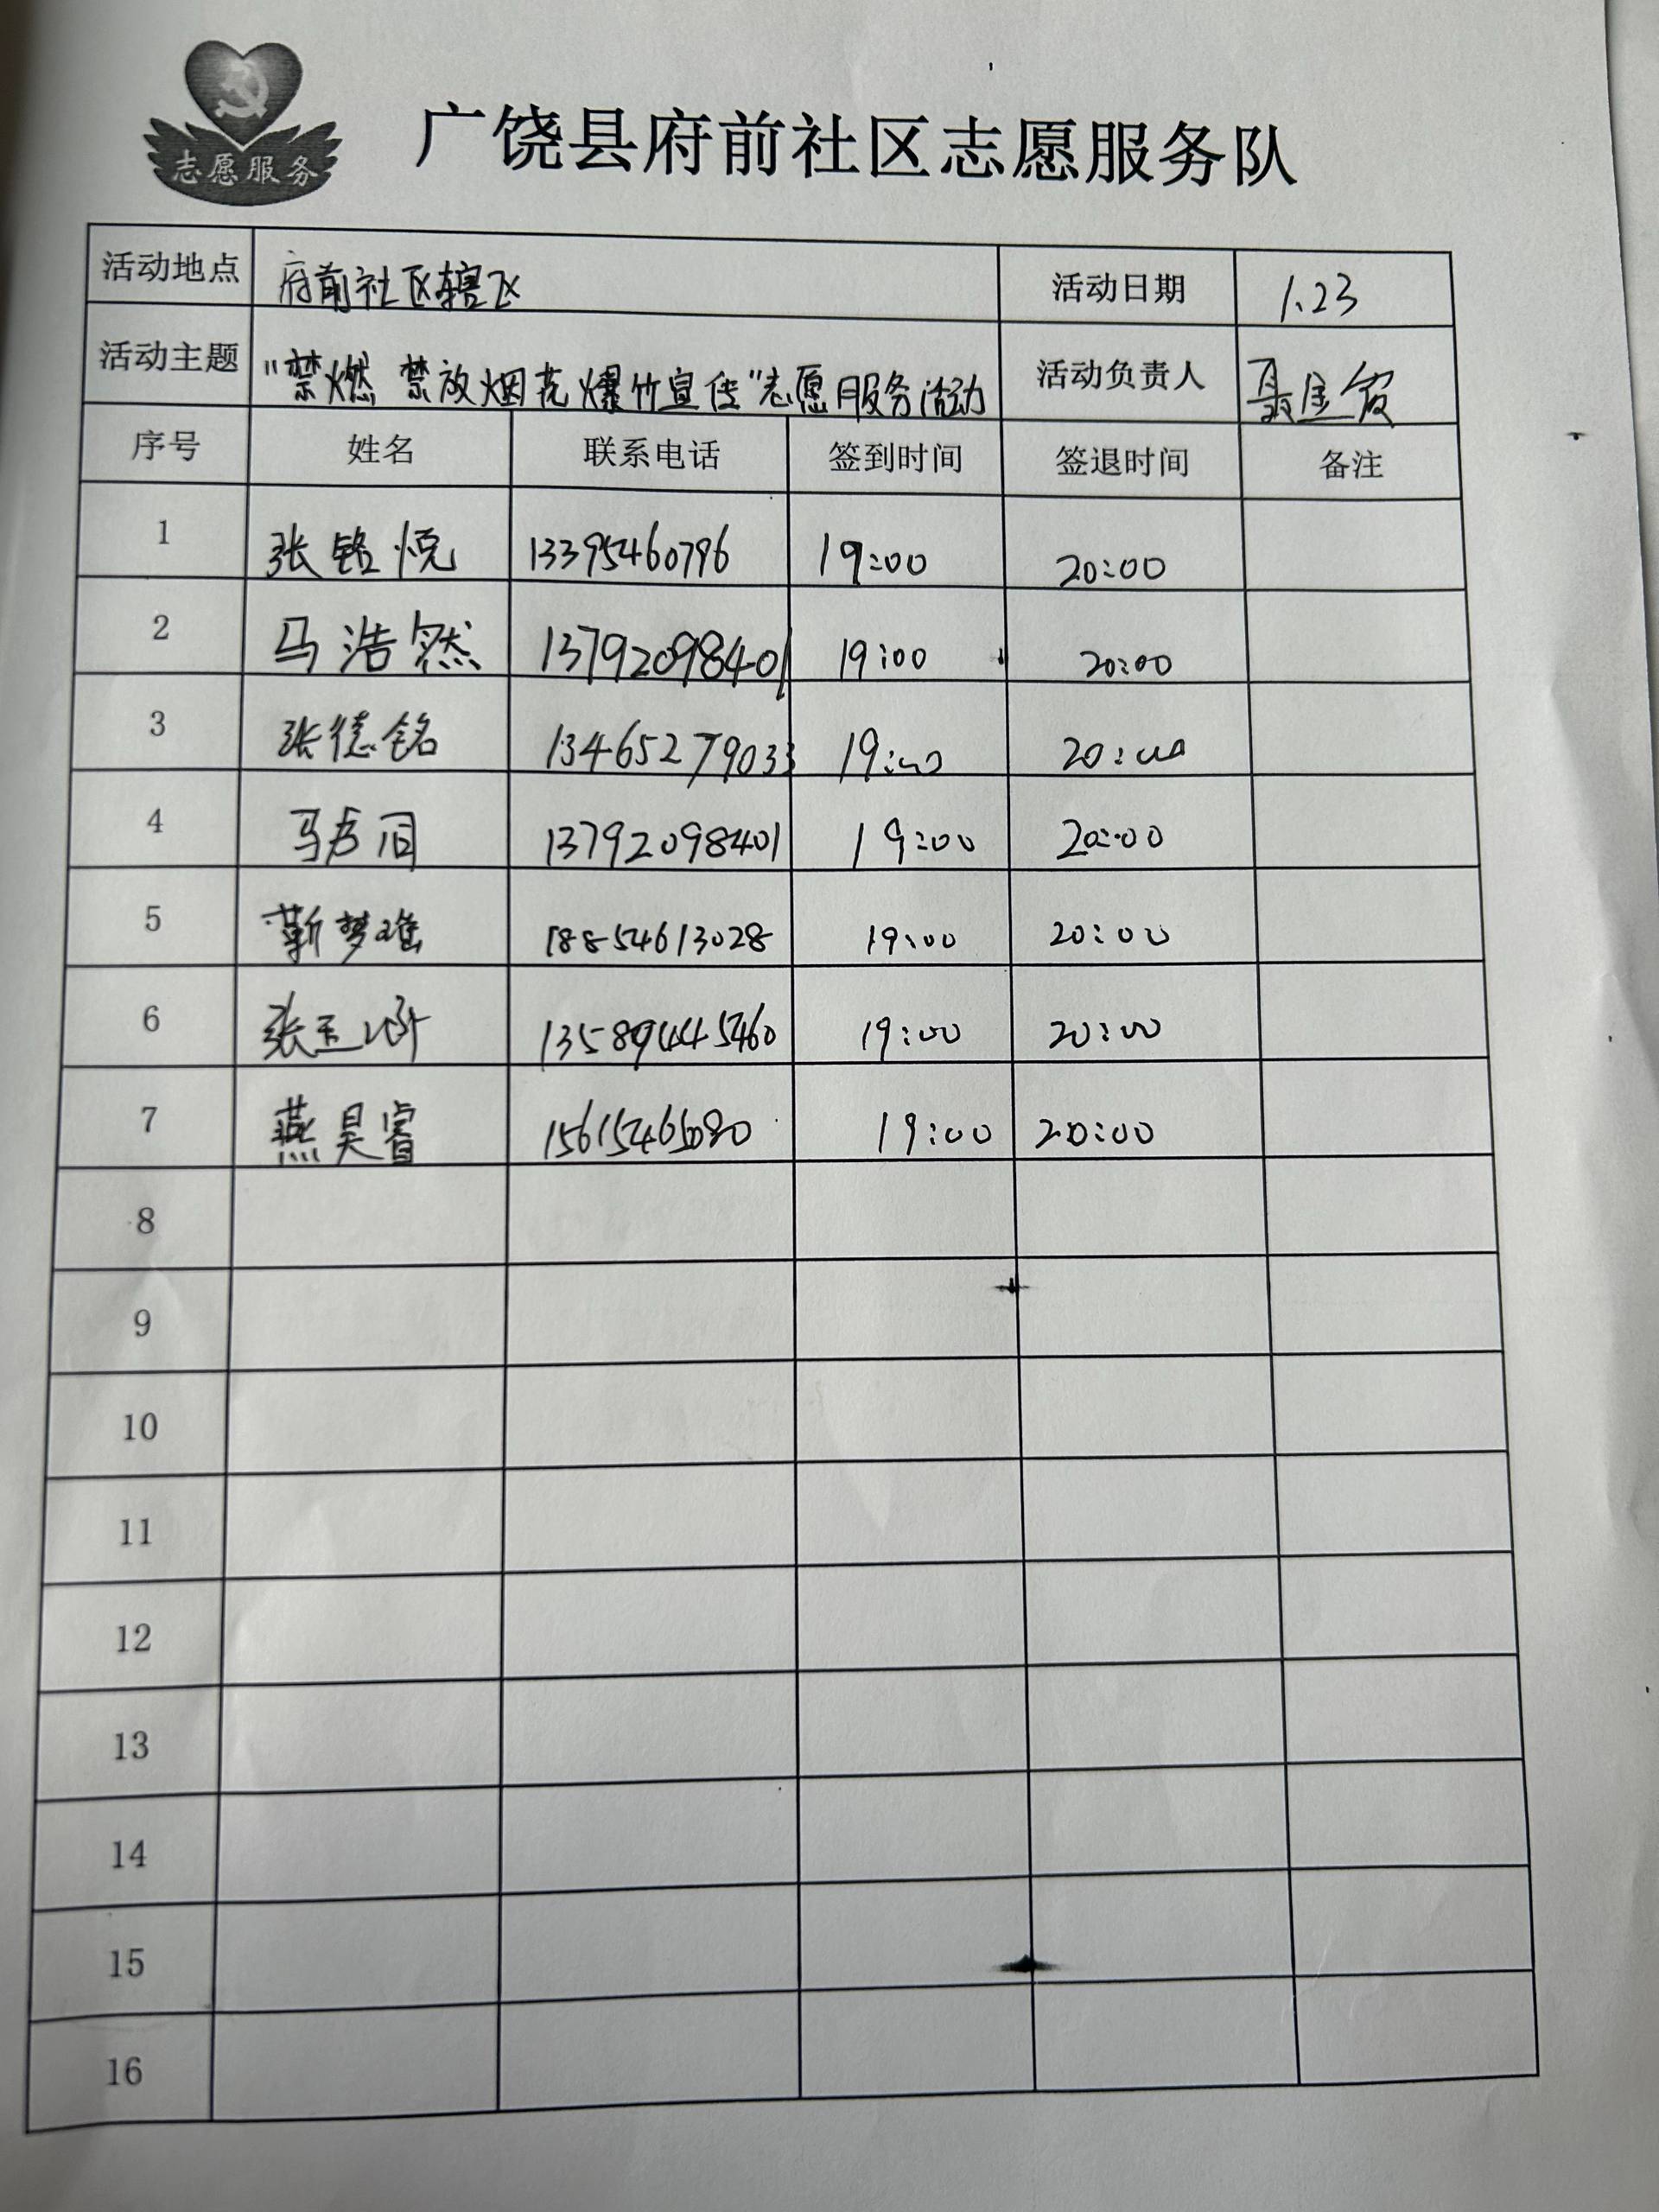 志愿服务
广饶县府前社区志愿服务队
活动地点 府前社区辖区 活动日期 1.23
活动主题 "禁燃 禁放烟花爆竹宣传"志愿服务活动 活动负责人
序号 姓名 联系电话 签到时间 签退时间 备注
1 张铭悦 13395460796 19:00 20:00
2 马浩然 13792098401 19:00 20:00
3 张德铭 13465279033 19:00 20:00
4 马 13792098401 19:00 20:00
5 靳梦瑶 18854613028 19:00 20:00
6 张玉 13589445460 19:00 20:00
7 燕昊睿 19:00 20:00
8
9
10
11
12
13
14
15
16